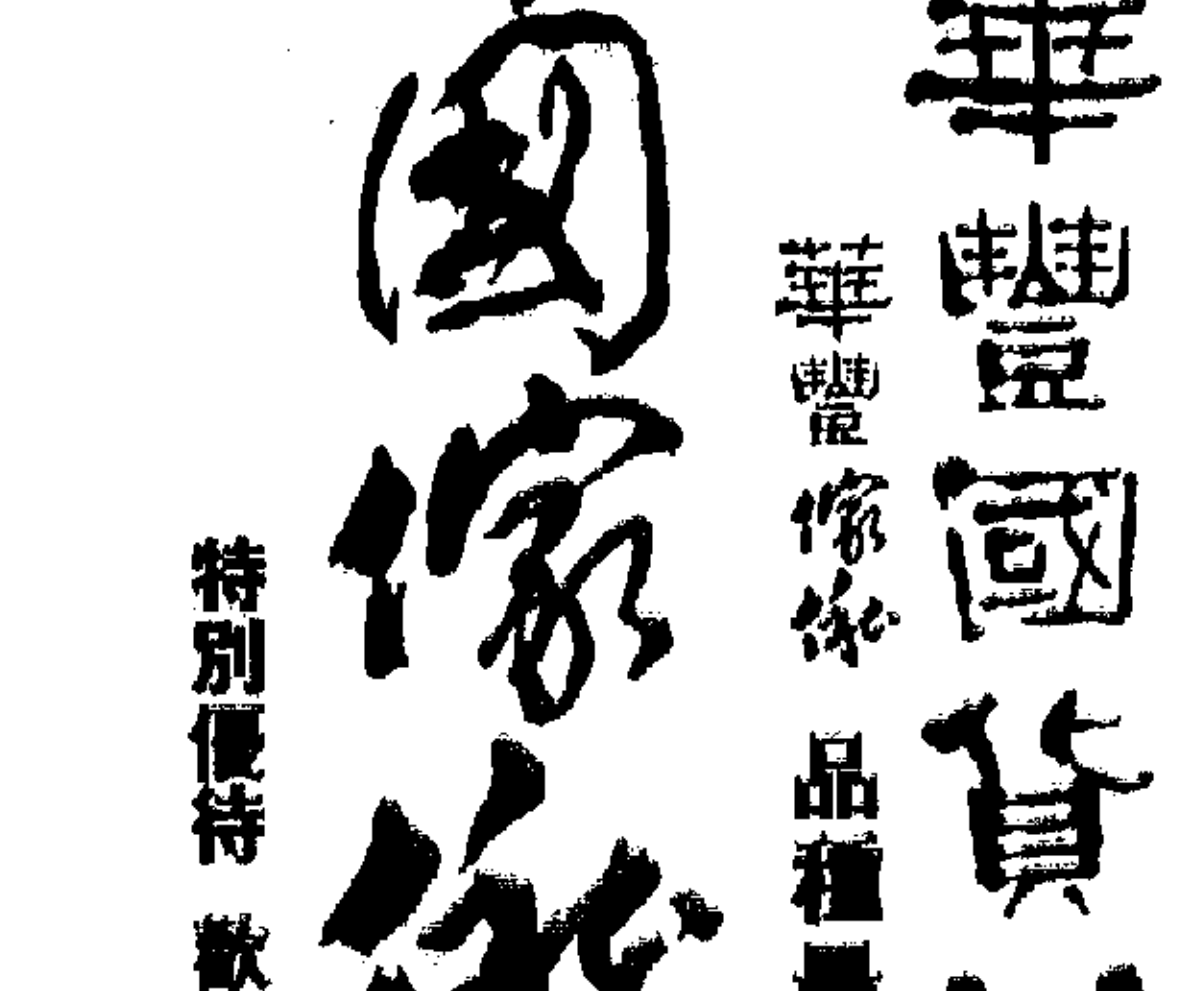 華豐國貨
華豐傢俬 品種
國傢俬
特別優待 歡